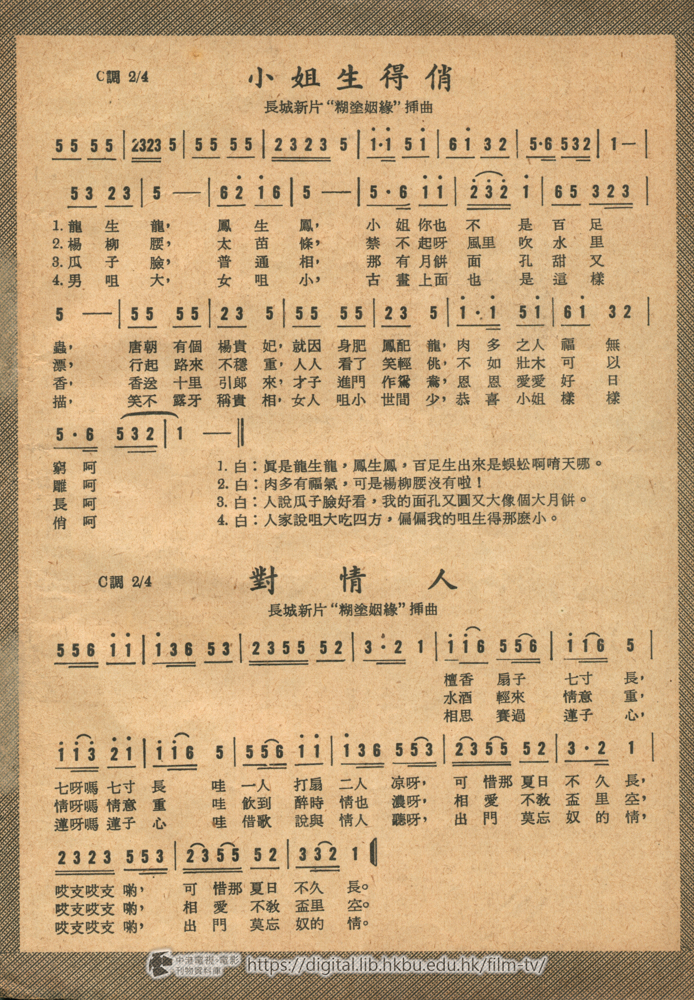 C調 2/4 小姐生得俏
長城新片“糊塗姻緣”挿曲
5 5 5 5 | 2323 5 | 5 5 5 5 | 2 3 2 3 5 | i·i 5 i | 6 i 3 2 | 5·6 5 3 2 | 1 — |
5 3 2 3 | 5 — | 6 2 i 6 | 5 — | 5 · 6 i i | 2 3 2 i | 6 5 3 2 3 |
1. 龍 生 龍， 鳳 生 鳳， 小 姐 你也 不 是 百 足
2. 楊 柳 腰， 太 苗 條， 禁 不 起呀 風里 吹 水 里
3. 瓜 子 臉， 普 通 相， 那 有 月餅 面 孔 甜 又
4. 男 咀 大， 女 咀 小， 古 畫 上面 也 是 這 樣
5 — | 5 5 5 5 | 2 3 5 | 5 5 5 5 | 2 3 5 | i · i 5 i | 6 i 3 2 |
蟲， 唐朝 有個 楊貴 妃，就因 身肥 鳳配 龍，肉 多 之人 福 無
漂， 行起 路來 不穩 重，人人 看了 笑輕 佻，不 如 壯木 可 以
香， 香送 十里 引郎 來，才子 進門 作鴛 鴦，恩 恩 愛愛 好 日
描， 笑不 露牙 稱貴 相，女人 咀小 世間 少，恭 喜 小姐 樣 樣
5 · 6 5 3 2 | 1 — ‖
窮 呵 1. 白：眞是龍生龍，鳳生鳳，百足生出來是蜈蚣啊唷天哪。
雕 呵 2. 白：肉多有福氣，可是楊柳腰沒有啦！
長 呵 3. 白：人說瓜子臉好看，我的面孔又圓又大像個大月餅。
俏 呵 4. 白：人家說咀大吃四方，偏偏我的咀生得那麽小。
C調 2/4 對情人
長城新片“糊塗姻緣”挿曲
5 5 6 i i | i 3 6 5 3 | 2 3 5 5 5 2 | 3 · 2 1 | i i 6 5 5 6 | i i 6 5 |
檀香 扇子 七寸 長，
水酒 輕來 情意 重，
相思 賽過 蓮子 心，
i i 3 2 i | i i 6 5 | 5 5 6 i i | i 3 6 5 5 3 | 2 3 5 5 5 2 | 3 · 2 1 |
七呀嗎 七寸 長 哇 一人 打扇 二人 凉呀， 可 惜那 夏日 不 久 長，
情呀嗎 情意 重 哇 飲到 醉時 情也 濃呀， 相 愛 不敎 盃 里 空，
蓮呀嗎 蓮子 心 哇 借歌 說與 情人 聽呀， 出 門 莫忘 奴 的 情，
2 3 2 3 5 5 3 | 2 3 5 5 5 2 | 3 3 2 1 ‖
哎支哎支 喲， 可 惜那 夏日 不久 長。
哎支哎支 喲， 相 愛 不敎 盃里 空。
哎支哎支 喲， 出 門 莫忘 奴的 情。
中港電視·電影
刊物資料庫 https://digital.lib.hkbu.edu.hk/film-tv/